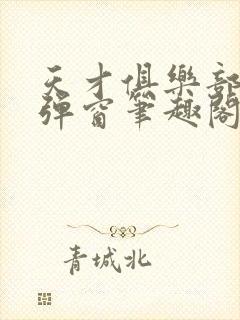 天才俱樂部
彈窗筆趣閣
青城北